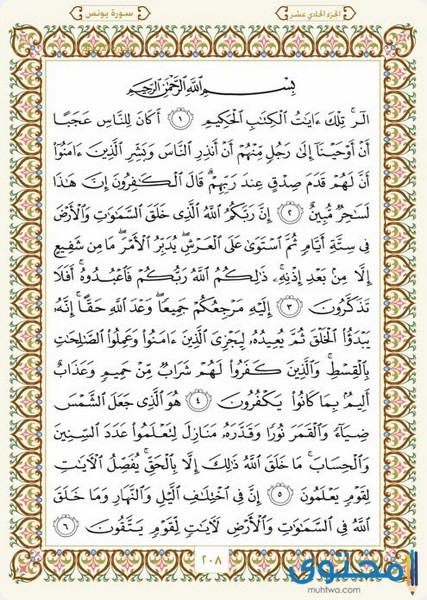 الجزء الحادي عشر
سورة يونس
بِسْمِ اللَّهِ الرَّحْمَٰنِ الرَّحِيمِ
الٓرۚ تِلْكَ ءَايَٰتُ ٱلْكِتَٰبِ ٱلْحَكِيمِ ١ أَكَانَ لِلنَّاسِ عَجَبًا
أَنْ أَوْحَيْنَآ إِلَىٰ رَجُلٍ مِّنْهُمْ أَنْ أَنذِرِ ٱلنَّاسَ وَبَشِّرِ ٱلَّذِينَ ءَامَنُوٓا۟
أَنَّ لَهُمْ قَدَمَ صِدْقٍ عِندَ رَبِّهِمْۗ قَالَ ٱلْكَٰفِرُونَ إِنَّ هَٰذَا
لَسَٰحِرٌ مُّبِينٌ ٢ إِنَّ رَبَّكُمُ ٱللَّهُ ٱلَّذِى خَلَقَ ٱلسَّمَٰوَٰتِ وَٱلْأَرْضَ
فِى سِتَّةِ أَيَّامٍ ثُمَّ ٱسْتَوَىٰ عَلَى ٱلْعَرْشِۖ يُدَبِّرُ ٱلْأَمْرَۖ مَا مِن شَفِيعٍ
إِلَّا مِنۢ بَعْدِ إِذْنِهِۦۚ ذَٰلِكُمُ ٱللَّهُ رَبُّكُمْ فَٱعْبُدُوهُۚ أَفَلَا
تَذَكَّرُونَ ٣ إِلَيْهِ مَرْجِعُكُمْ جَمِيعًاۖ وَعْدَ ٱللَّهِ حَقًّاۚ إِنَّهُۥ
يَبْدَؤُا۟ ٱلْخَلْقَ ثُمَّ يُعِيدُهُۥ لِيَجْزِىَ ٱلَّذِينَ ءَامَنُوا۟ وَعَمِلُوا۟ ٱلصَّٰلِحَٰتِ
بِٱلْقِسْطِۚ وَٱلَّذِينَ كَفَرُوا۟ لَهُمْ شَرَابٌ مِّنْ حَمِيمٍ وَعَذَابٌ
أَلِيمٌۢ بِمَا كَانُوا۟ يَكْفُرُونَ ٤ هُوَ ٱلَّذِى جَعَلَ ٱلشَّمْسَ
ضِيَآءً وَٱلْقَمَرَ نُورًا وَقَدَّرَهُۥ مَنَازِلَ لِتَعْلَمُوا۟ عَدَدَ ٱلسِّنِينَ
وَٱلْحِسَابَۚ مَا خَلَقَ ٱللَّهُ ذَٰلِكَ إِلَّا بِٱلْحَقِّۚ يُفَصِّلُ ٱلْءَايَٰتِ
لِقَوْمٍ يَعْلَمُونَ ٥ إِنَّ فِى ٱخْتِلَٰفِ ٱلَّيْلِ وَٱلنَّهَارِ وَمَا خَلَقَ
ٱللَّهُ فِى ٱلسَّمَٰوَٰتِ وَٱلْأَرْضِ لَءَايَٰتٍ لِّقَوْمٍ يَتَّقُونَ ٦
٢٠٨
محتوى
muhtwa.com